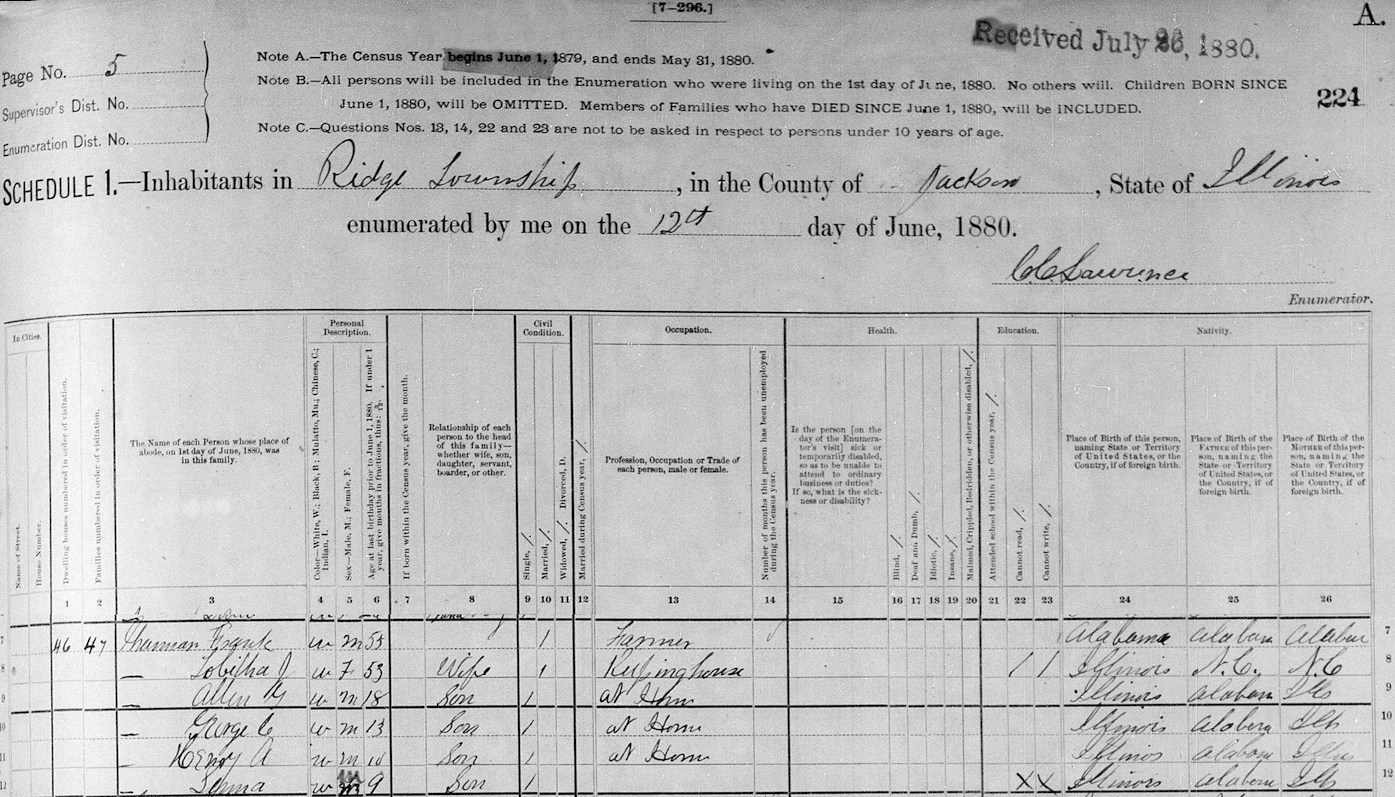 [7–296.]
A.
Received July 26, 1880.
Page No. 5
Supervisor's Dist. No.
Enumeration Dist. No.
Note A.—The Census Year begins June 1, 1879, and ends May 31, 1880.
Note B.—All persons will be included in the Enumeration who were living on the 1st day of June, 1880. No others will. Children BORN SINCE
June 1, 1880, will be OMITTED. Members of Families who have DIED SINCE June 1, 1880, will be INCLUDED.
Note C.—Questions Nos. 13, 14, 22 and 23 are not to be asked in respect to persons under 10 years of age.
224
SCHEDULE 1.—Inhabitants in Ridge Township, in the County of Jackson, State of Illinois
enumerated by me on the 12th day of June, 1880.
CC Lawrence
Enumerator.
In Cities.
Name of Street.
House Number.
Dwelling houses numbered in order of visitation.
Families numbered in order of visitation.
The Name of each Person whose place of
abode, on 1st day of June, 1880, was
in this family.
Personal
Description.
Color—White, W.; Black, B.; Mulatto, Mu.; Chinese, C.;
Indian, I.
Sex—Male, M.; Female, F.
Age at last birthday prior to June 1, 1880. If under 1
year, give months in fractions, thus: 3/12.
If born within the Census year, give the month.
Relationship of each
person to the head
of this family—
whether wife, son,
daughter, servant,
boarder, or other.
Civil
Condition.
Single, /.
Married, /.
Widowed, /. Divorced, D.
Married during Census year, /.
Occupation.
Profession, Occupation or Trade of
each person, male or female.
Number of months this person has been unemployed
during the Census year.
Health.
Is the person [on the
day of the Enumera-
tor's visit] sick or
temporarily disabled,
so as to be unable to
attend to ordinary
business or duties?
If so, what is the sick-
ness or disability?
Blind, /.
Deaf and Dumb, /.
Idiotic, /.
Insane, /.
Maimed, Crippled, Bedridden, or otherwise disabled, /.
Education.
Attended school within the Census year, /.
Cannot read, /.
Cannot write, /.
Nativity.
Place of Birth of this person,
naming State or Territory
of United States, or the
Country, if of foreign birth.
Place of Birth of the
FATHER of this per-
son, naming the
State or Territory
of United States, or
the Country, if of
foreign birth.
Place of Birth of the
MOTHER of this per-
son, naming the
State or Territory
of United States, or
the Country, if of
foreign birth.
1 2 3 4 5 6 7 8 9 10 11 12 13 14 15 16 17 18 19 20 21 22 23 24 25 26
7 46 47 Thurman Frank w m 55 / Farmer Alabama Alabama Alabam 7
8 — Tobitha J w F 53 Wife / Keeping house / / Illinois N.C. N.C 8
9 — Allen G w m 18 Son / at Home Illinois Alabama Ills 9
10 — George C w m 13 Son / at Home Illinois Alabama Ills 10
11 — Henry A w m 10 Son / at Home Illinois Alabama Ills 11
12 — w m 9 Son / X X Illinois Alabama Ills 12